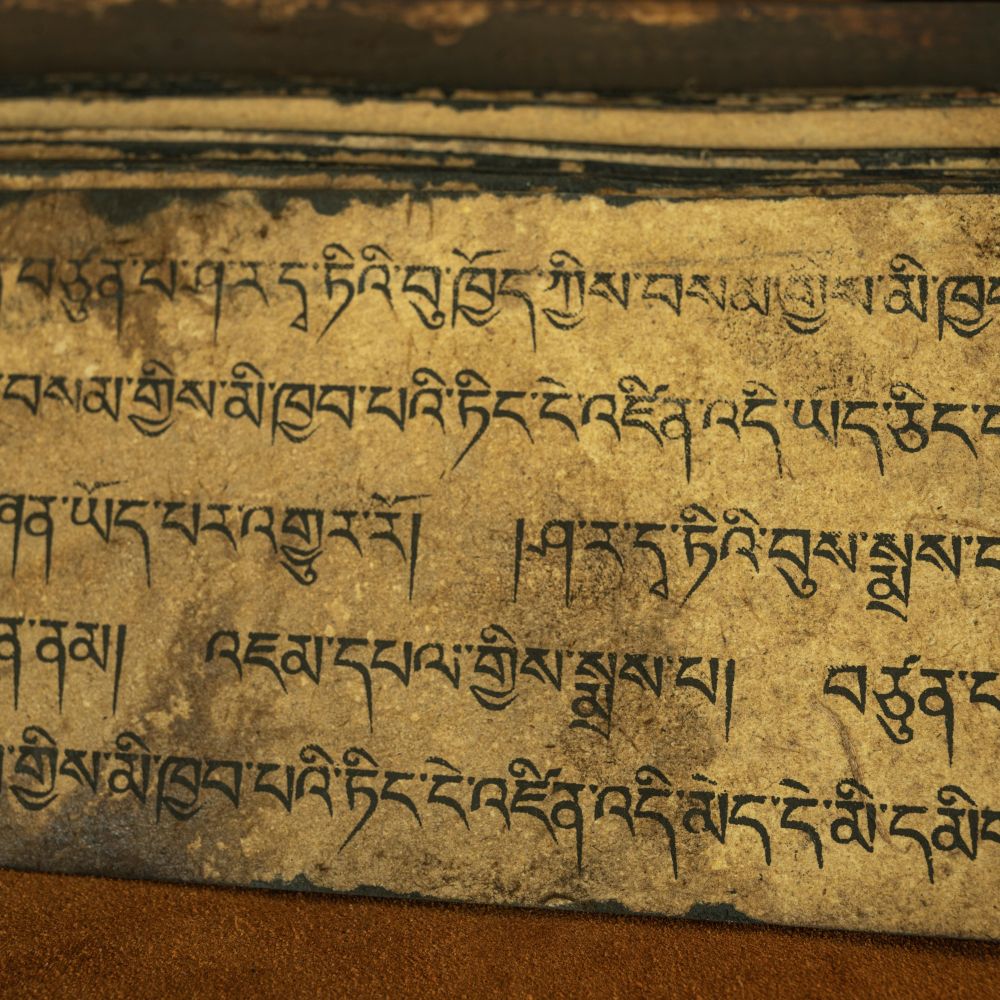 བཙུན་པ་ཤ་ར་དྭ་ཏིའི་བུ་ཁྱོད་ཀྱིས་བསམ་གྱིས་མི་ཁྱབ
བསམ་གྱིས་མི་ཁྱབ་པའི་ཏིང་ངེ་འཛིན་འདི་ཡོད་ཅིང་
ཤན་ཡོད་པར་འགྱུར་རོ། །ཤ་ར་དྭ་ཏིའི་བུས་སྨྲས་
ནམ། འཇམ་དཔལ་གྱིས་སྨྲས་པ། བཙུན་
གྱིས་མི་ཁྱབ་པའི་ཏིང་ངེ་འཛིན་འདི་མེད་དེ་མི་དམི